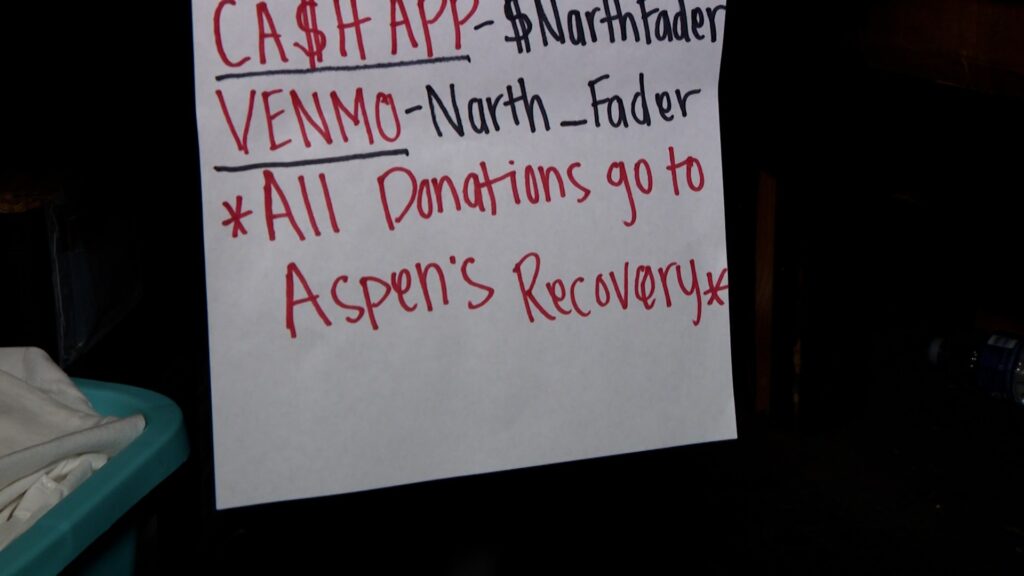 CA$H APP-$NarthFader
VENMO-Narth_Fader
*All Donations go to
Aspen's Recovery*